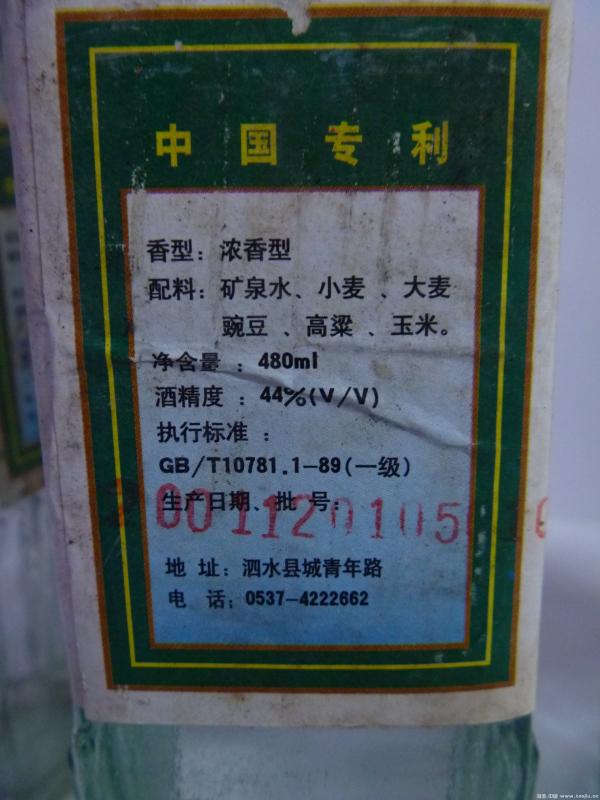 中国专利
香型：浓香型
配料：矿泉水、小麦、大麦
豌豆、高粱、玉米。
净含量：480ml
酒精度：44%(V/V)
执行标准：
GB/T10781.1-89(一级)
生产日期、批号：
2001120105
地 址：泗水县城青年路
电 话：0537-4222662